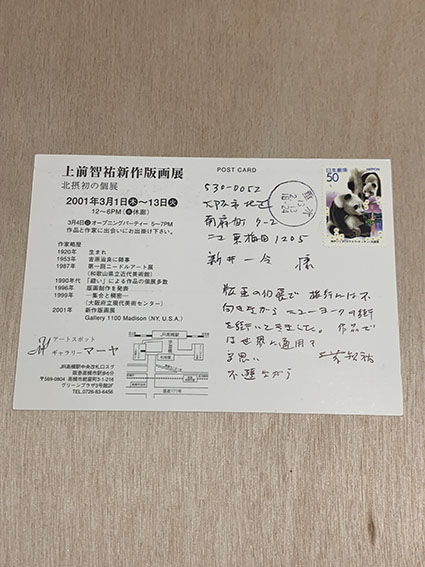 上前智祐新作版画展
北摂初の個展
2001年3月1日木〜13日火
12〜6PM(水休廊)
3月4日日オープニングパーティー 5〜7PM
作品と作家に出会いにお出掛け下さい。
作家略歴
1920年 生まれ
1953年 吉原治良に師事
1987年 第一回ニードルアート展
(和歌山県立近代美術館)
1990年代 「縫い」による作品の個展多数
1996年 版画制作を発表
1999年 一集合と稠密一
(大阪府立現代美術センター)
2001年 新作版画展
Gallery 1100 Madison (NY, U.S.A.)
アートスポット
ギャラリー マーヤ
JR高槻駅中央改札口スグ
阪急高槻市駅歩6分
〒569-0804 高槻市紺屋町3-1-216
グリーンプラザ3号館2F
TEL.0726-83-6456
JR高槻駅
国道171号
POST CARD
日本郵便
50
NIPPON
530-0052
大阪市北区
南扇町
東梅田1205
新井一令 様
版画の
ニューヨークの
を続いて来ました。作品で
は世界に通用す
る思い
不遜ながら